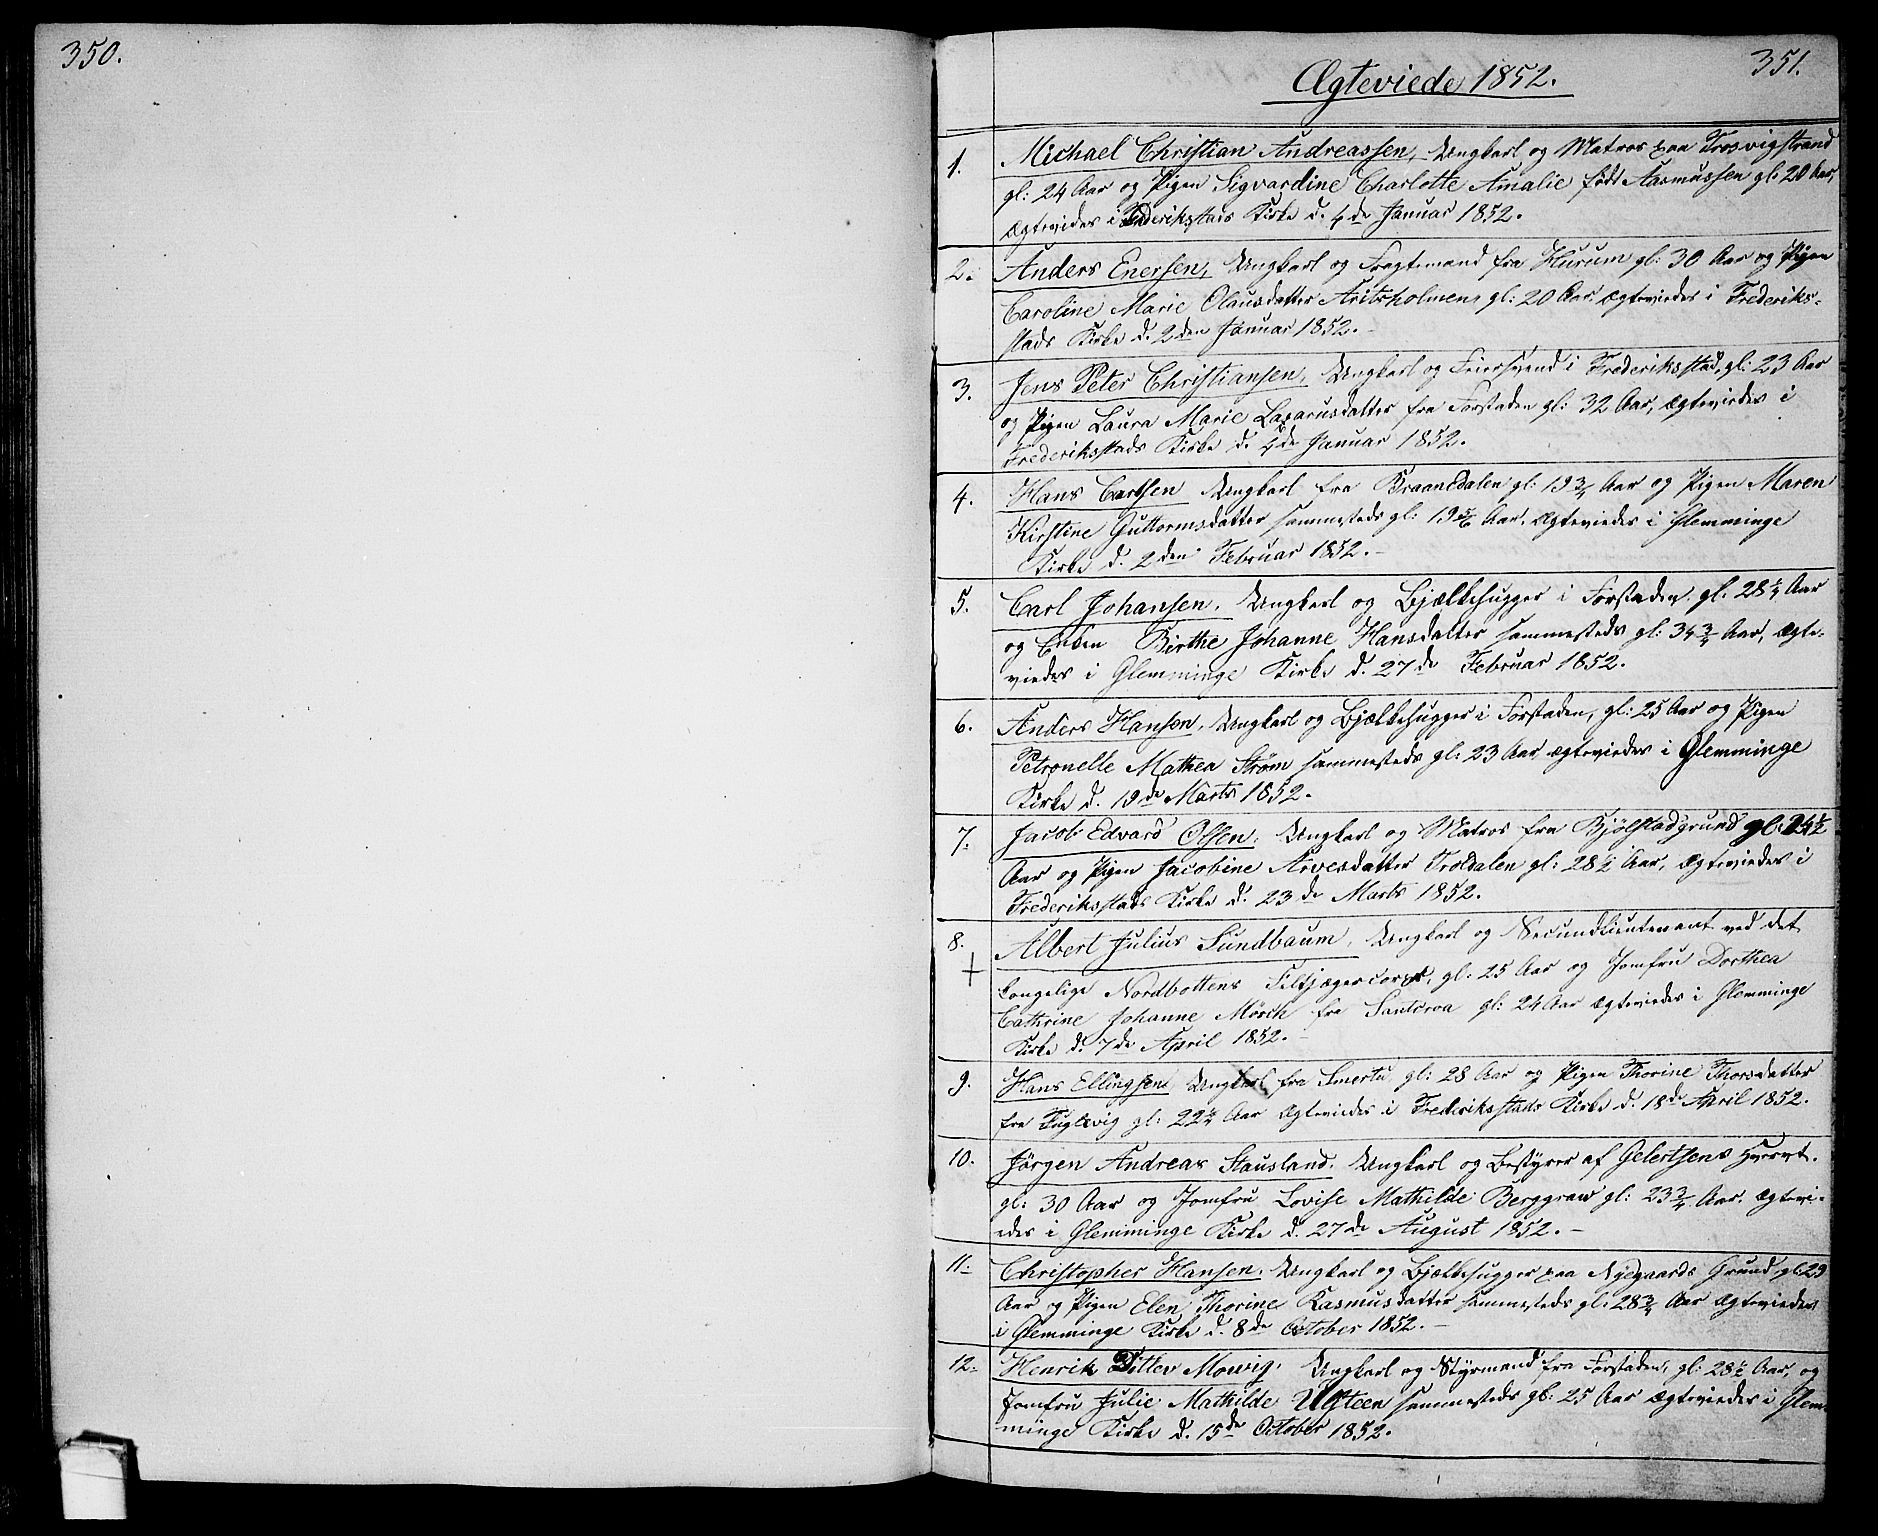 350.
351.
Ægteviede 1852.
1. Michael Christian Andreassen, Ungkarl og Matros paa Trosvigstrand
gl: 24 Aar og Pigen Sigvardine Charlotte Amalie født Aasmussen gl: 20 Aar,
ægtevides i Frederikstads Kirke d. 4de Januar 1852.
2. Anders Enersen, Ungkarl og Fragtemand fra Hurum gl: 30 Aar og Pigen
Caroline Marie Olausdatter gl: 20 Aar. ægteviedes i Frederiks-
stads Kirke d. 2den Januar 1852.
3. Jens Peter Christiansen, Ungkarl og Feiersvend i Frederiksstad, gl: 23 Aar
og Pigen Laura Marie Lazarusdatter fra Forstaden gl: 32 Aar, ægteviedes i
Frederiksstads Kirke d. 4de Januar 1852.
4. Hans Carlsen Ungkarl fra Braanedalen gl: 19 3/4 Aar og Pigen Maren
Kirstine Guttormsdatter sammesteds gl: 19 5/6 Aar. ægteviedes i Glemminge
Kirke d. 2den Februar 1852.
5. Carl Johansen, Ungkarl og Bjælkehugger i Forstaden, gl. 28 1/4 Aar
og Enken Birthe Johanne Hansdatter sammesteds gl: 34 3/4 Aar, ægte-
viedes i Glemminge Kirke d. 27de Februar 1852.
6. Anders Hansen, Ungkarl og Bjælkehugger i Forstaden, gl: 25 Aar og Pigen
Petronelle Mathea Strøm sammesteds gl: 23 Aar, ægteviedes i Glemminge
Kirke d. 19de Marts 1852.
7. Jacob Edvard Olsen, Ungkarl og Matros fra Bjølstadgrund gl: 24 1/2
Aar og Pigen Jacobine Arvesdatter Troldalen gl: 28 1/2 Aar, ægteviedes i
Frederiksstads Kirke d. 23de Marts 1852.
8. Albert Julius Sundbaum, Ungkarl og Secundlieutenant ved det
kongelige Nordbottens Feltjægercorps, gl: 25 Aar og Jomfru Dorthea
Cathrine Johanne Mörch fra Santcroa gl: 24 Aar ægteviedes i Glemminge
Kirke d. 7de April 1852.
9. Hans Ellingsen Ungkarl fra Smertu gl: 28 Aar og Pigen Thorine Thorsdatter
fra Fuglevig gl: 22 Aar ægteviedes i Frederiksstads Kirke d. 18de April 1852.
10. Jørgen Andreas Stausland. Ungkarl og Bestyrer af Gelertsens
gl: 30 Aar og Jomfru Lovise Mathilde Berggrav gl: 23 3/4 Aar, ægtevi-
edes i Glemminge Kirke d. 27de August 1852.
11. Christopher Hansen, Ungkarl og Bjælkehugger paa Nyegaards Grund gl: 29
Aar og Pigen Elen Thorine Rasmusdatter sammesteds gl: 28 3/4 Aar ægteviedes
i Glemminge Kirke d. 8de October 1852.
12. Henrik Ditlev Mowig, Ungkarl og Styrmand fra Forstaden, gl: 28 1/2 Aar, og
Jomfru Julie Mathilde Ulsteen sammesteds gl: 25 Aar ægteviedes i Glem-
minge Kirke d. 15de October 1852.